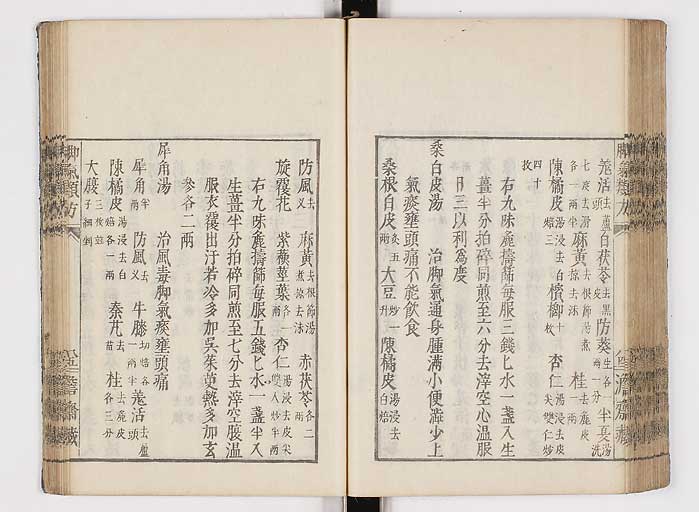 羗活去蘆頭 白茯苓去黑皮 防葵生各一分 半夏湯洗
七度去滑各一兩半 麻黃去根節煎掠去沫 桂去麁皮一兩
陳橘皮湯浸去白焙三 檳榔十枚 杏仁湯浸去皮尖雙仁炒
四十枚
右九味麁擣篩每服三錢匕水一盞入生
薑半分拍碎同煎至六分去滓空心溫服
日三以利爲度
桑白皮湯 治脚氣通身腫滿小便澁少上
氣痰壅頭痛不能飲食
桑根白皮炙五兩 大豆炒一升 陳橘皮湯浸去白焙
防風去叉 麻黃去根節湯煮掠去沫 赤茯苓各二兩
旋覆花 紫蘇莖葉各一兩 杏仁湯浸去皮尖雙人炒半兩
右九味麁擣篩每服五錢匕水一盞半入
生薑半分拍碎同煎至七分去滓空腹溫
服衣覆出汗若冷多加吳茱萸熱多加玄
參各二兩
犀角湯 治風毒脚氣痰壅頭痛
犀角半兩 防風去叉 牛膝切焙各 羗活去蘆頭
陳橘皮湯浸去白焙各一兩 秦艽去苗 桂去麁皮各三分
大腹三枚並子細剉
脚氣類方
脚氣類方
濟齋藏